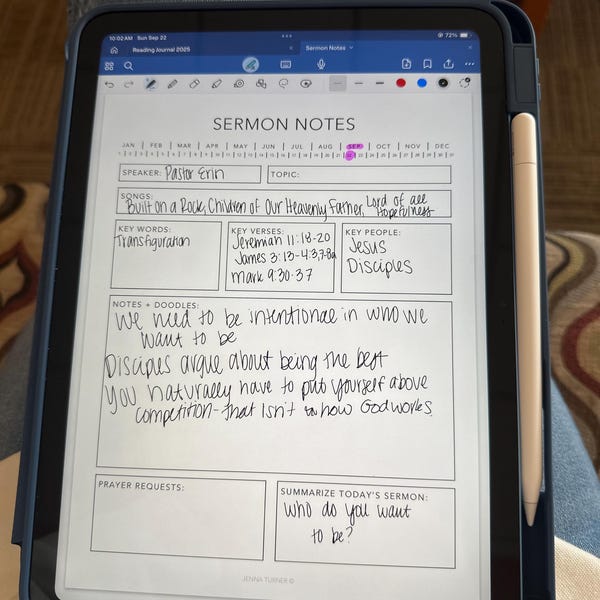 10:02 AM Sun Sep 22
72%
Reading Journal 2025
Sermon Notes
SERMON NOTES
JAN | FEB | MAR | APR | MAY | JUN | JUL | AUG | SEP | OCT | NOV | DEC
SPEAKER: Pastor Erin
TOPIC:
SONGS:
Built on a Rock, Children of Our Heavenly Father, Lord of all
Hopefulness
KEY WORDS:
Transfiguration
KEY VERSES:
Jeremiah 11:18-20
James 3:13-4:3,7-8a
Mark 9:30-37
KEY PEOPLE:
Jesus
Disciples
NOTES + DOODLES:
We need to be intentional in who we
want to be
Discipes argue about being the best
You naturally have to put yourself above
competition - that isn't how God works.
PRAYER REQUESTS:
SUMMARIZE TODAY'S SERMON:
Who do you want
to be?
JENNA TURNER ©